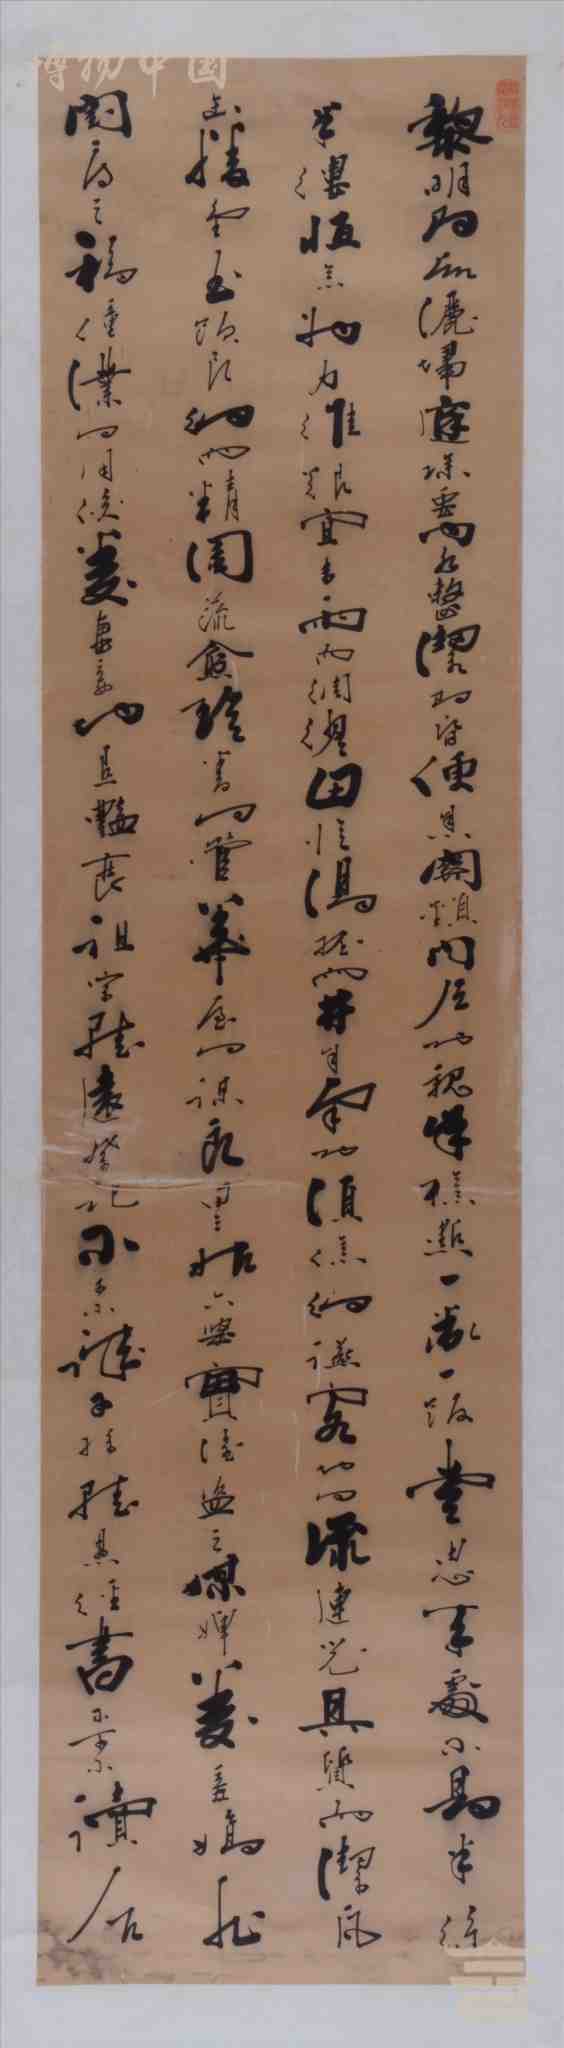 博物中国
黎明即起灑掃庭除要内外整潔既昏便息關鎖門戶必親檢點一粥一飯當思來處不易半絲
半縷恒念物力維艱宜未雨而綢繆田臨渴掘而井自奉必須儉約讌客切勿流連器具質而潔瓦
缶勝金玉飲食約而精園蔬愈珍羞勿營華屋勿謀良里姑六婆實淫盜之媒婢美妾嬌非
閨房之福僮僕勿用俊美妻妾切忌艷裝祖宗雖遠祭祀不可不誠子孫雖愚經書不可不讀居